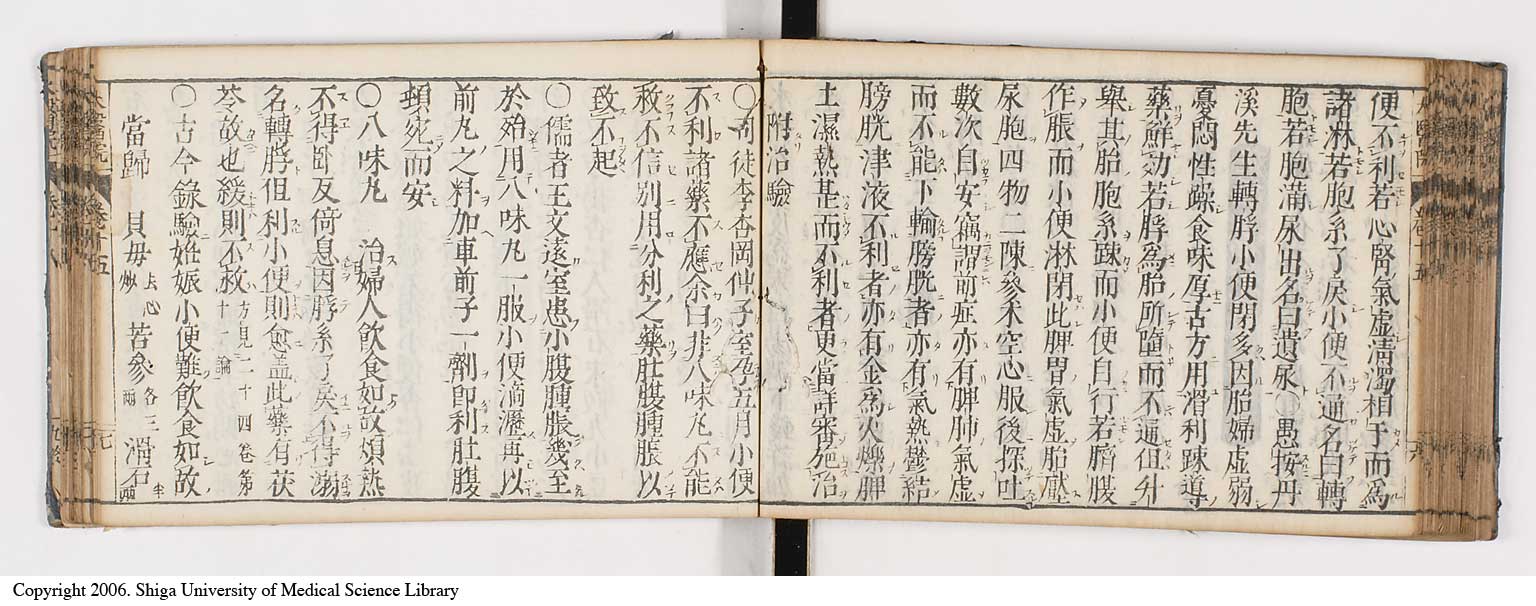 便不利若心腎氣虛淸濁相干而爲
諸淋若胞系了戾小便不通名曰轉
胞若胞滿尿出名曰遺尿○愚按丹
溪先生轉脬小便閉多因胎婦虛弱
憂悶性躁食味厚古方用滑利踈導
藥鮮効若脬爲胎所墮而不通但升
擧其胎胞系踈而小便自行若臍腹
作脹而小便淋閉此脾胃氣虛胎壓
尿胞四物二陳參朮空心服後探吐
數次自安竊謂前症亦有脾肺氣虛
而不能下輸膀胱者亦有氣熱鬱結
膀胱津液不利者亦有金爲火爍脾
土濕熱甚而不利者更當詳審施治
附治驗
○司徒李杏岡仲子室孕五月小便
不利諸藥不應余曰非八味丸不能
救不信別用分利之藥肚腹腫脹以
致不起
○儒者王文遠室患小腹腫脹幾至
於殆用八味丸一服小便滴瀝再以
前丸之料加車前子一劑卽利肚腹
頓寬而安
○八味丸 治婦人飮食如故煩熱
不得臥反倚息因脬系了戾不得溺
名轉脬但利小便則愈盖此藥有茯
苓故也緩則不救方見二十四卷第十一論
○古今錄驗姙娠小便難飮食如故
當歸 貝母去心炒 苦參各三兩 滑石半兩
Copyright 2006. Shiga University of Medical Science Library